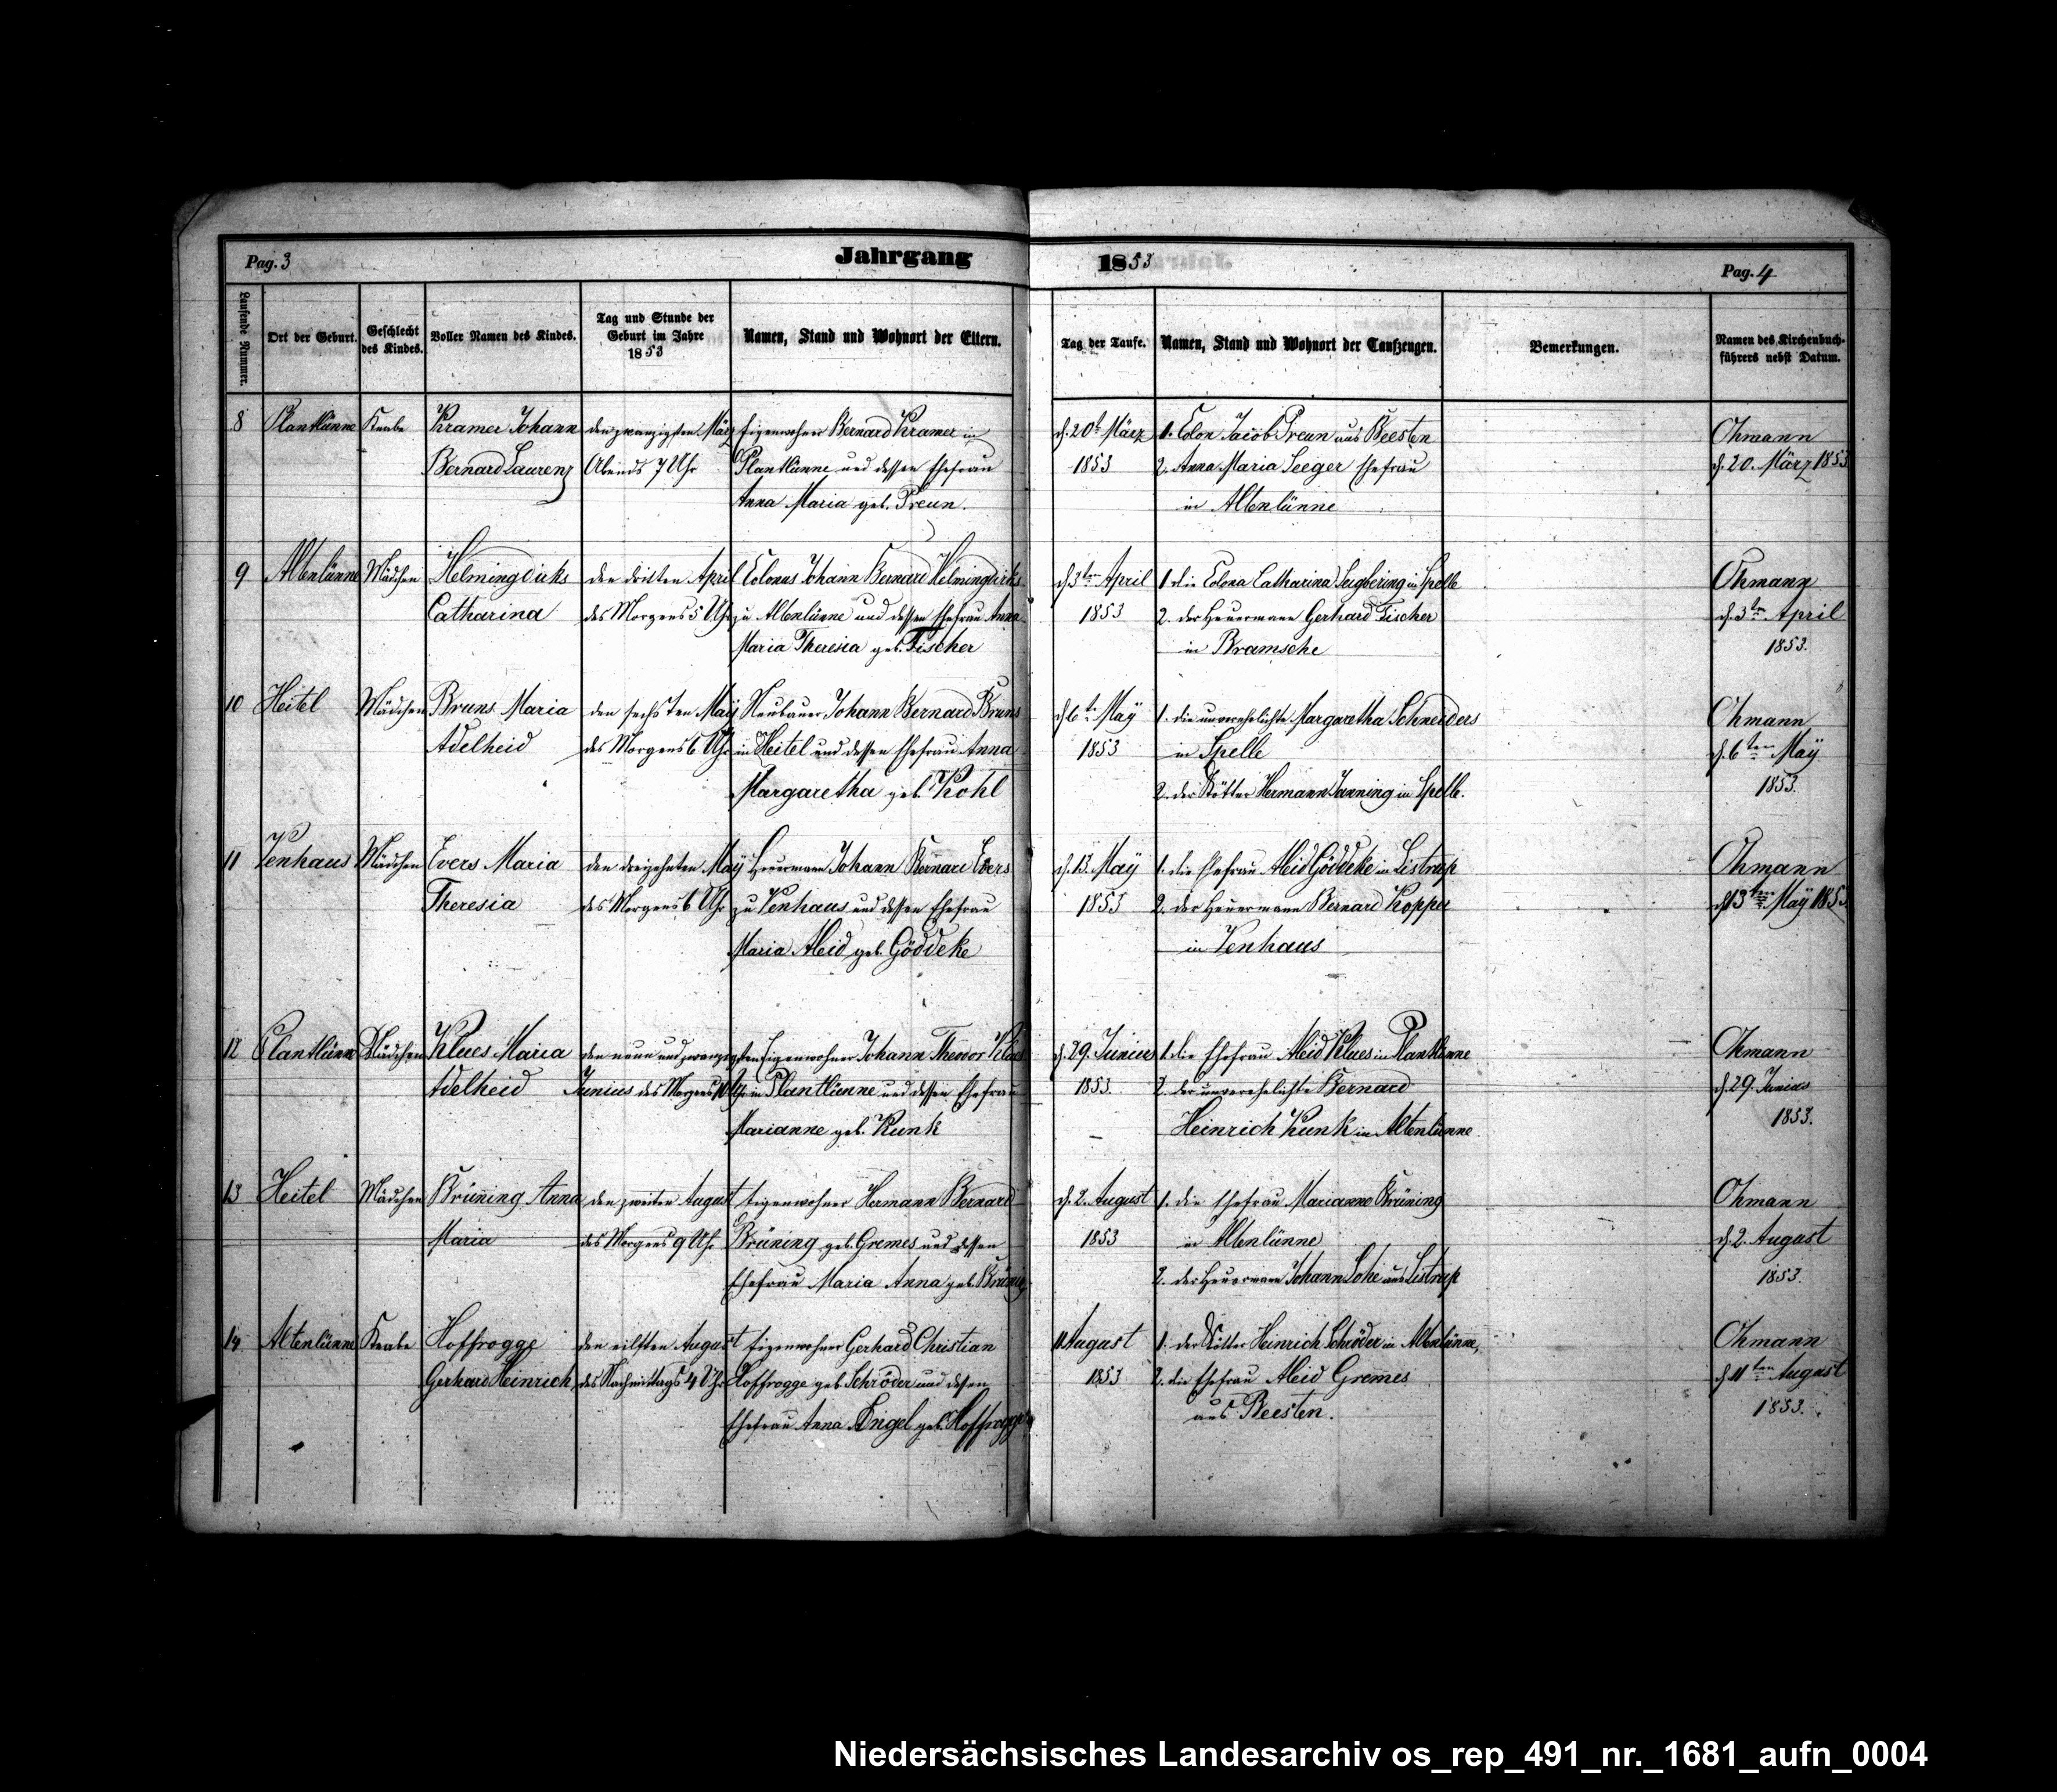 Pag. 3
Jahrgang
1853
Pag. 4
Laufende Numer.
Ort der Geburt.
Geschlecht
des Kindes.
Voller Namen des Kindes.
Tag und Stunde der
Geburt im Jahre
1853
Namen, Stand und Wohnort der Eltern.
Tag der Taufe.
Namen, Stand und Wohnort der Taufzeugen.
Bemerkungen.
Namen des Kirchenbuch-
führers nebst Datum.
8
Plantlünne
Knabe
Kramer Johann
Bernard Laurenz
den zwanzigsten März
Abends 7 Uhr
Eigenwohner Bernard Kramer in
Plantlünne und dessen Ehefrau
Anna Maria geb. Preun.
d. 20t März
1853
1. Colon Jacob Preun aus Beesten
2. Anna Maria Seeger Ehefrau
in Altenlünne
Ohmann
d. 20. März 1853
9
Altenlünne
Mädchen
Helmingdirks
Catharina
den dritten April
des Morgens 5 Uhr
Colonus Johann Bernard Helmingdirks
zu Altenlünne und dessen Ehefrau Anna
Maria Theresia geb. Fischer
d. 3ten April
1853
1. die Colona Catharina in Spelle
2. der Heuermann Gerhard Fischer
in Bramsche
Ohmann
d. 3ten April
1853.
10
Heitel
Mädchen
Bruns Maria
Adelheid
den sechsten Maÿ
des Morgens 6 Uhr
Neubauer Johann Bernard Bruns
in Heitel und dessen Ehefrau Anna
Margaretha geb. Kohl
d. 6t Maÿ
1853
1. die unverehelichte Margaretha Schneiders
in Spelle
2. der Kötter Hermann Janning in Spelle.
Ohmann
d. 6ten Maÿ
1853.
11
Venhaus
Mädchen
Evers Maria
Theresia
den dreizehnten Maÿ
des Morgens 6 Uhr
Heuermann Johann Bernard Evers
zu Venhaus und dessen Ehefrau
Maria Aleid geb. Göddeke
d. 13. Maÿ
1853
1. die Ehefrau Aleid Göddeke in Listrup
2. der Heuermann Bernard Kopper
in Venhaus
Ohmann
d. 13ten Maÿ 1853
12
Plantlünne
Mädchen
Klues Maria
Adelheid
den neun und zwanzigsten
Junius des Morgens 10 Uhr
Eigenwohner Johann Theodor Klues
in Plantlünne und dessen Ehefrau
Marianne geb. Kunk
d. 29. Junius
1853.
1. die Ehefrau Aleid Klues in Plantlünne
2. der unverehelichte Bernard
Heinrich Kunk in Altenlünne
Ohmann
d. 29. Junius
1853.
13
Heitel
Mädchen
Brüning Anna
Maria
den zweiten August
des Morgens 9 Uhr
Eigenwohner Hermann Bernard
Brüning geb. Gremes und dessen
Ehefrau Maria Anna geb. Brüning
d. 2. August
1853
1. die Ehefrau Marianne Brüning
in Altenlünne
2. der Heuermann Johann Lohe aus Listrup
Ohmann
d. 2. August
1853.
14
Altenlünne
Knabe
Hoffrogge
Gerhard Heinrich
den eilften August
des Nachmittags 4 Uhr
Eigenwohner Gerhard Christian
Hoffrogge geb. Schröder und dessen
Ehefrau Anna Engel geb. Hoffrogge
11 August
1853
1. der Kötter Heinrich Schröder in Altenlünne,
2. die Ehefrau Aleid Gremes
aus Beesten.
Ohmann
d. 11ten August
1853.
Niedersächsisches Landesarchiv os_rep_491_nr._1681_aufn_0004